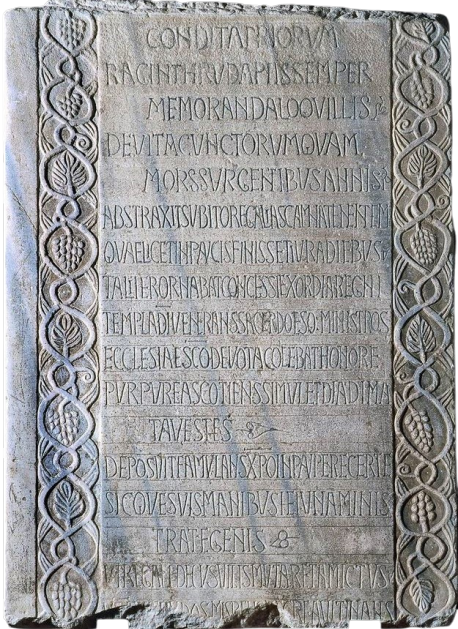 CONDITA
RAGINTHRUDA PIIS SEMPER
MEMORANDA LOQVILLIS
DE VITA CVNCTORVM QVAM
MORS SVRGENTIBVS ANNIS
ABSTRAXIT SVBITO REGALI
QVAE LICET IN PAVCIS FINISSET IVRA DIEBVS
TALITER ORNABAT CONCESSI EXORDIA REGNI
TEMPLA DI VENERANS SACERDOTES Q MINISTROS
ECCLESIAE SCO DEVOTA COLEBAT HONORE
PVRPVREAS SIMVL ET DIADIMA
TA VESTES
DEPOSVIT FAMVLANS XPO IN PAVPERE CERTE
SICQVE SVIS MANIBVS IEIVNA MINIS
TRAT EGENIS
VILIS MVTARET AMICTVS